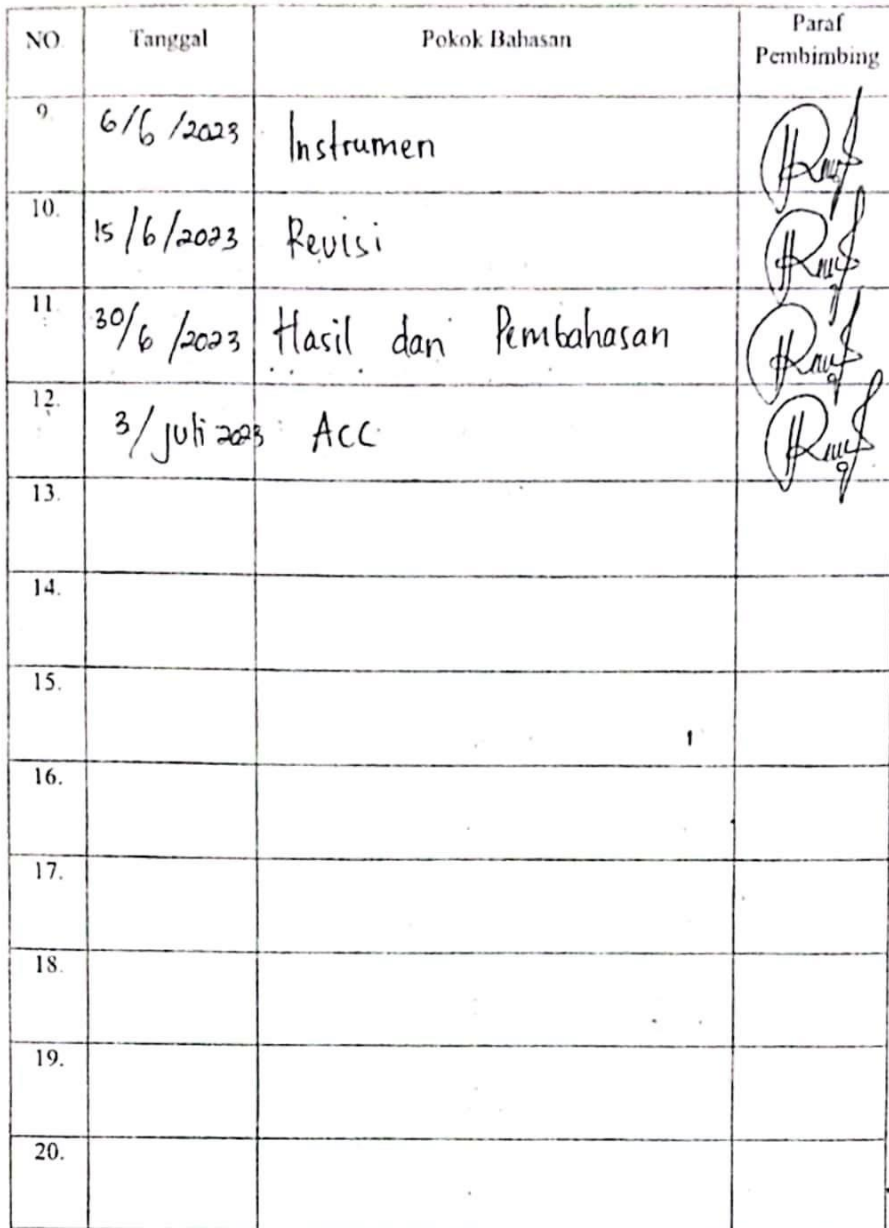 NO. Tanggal Pokok Bahasan Paraf Pembimbing
9. 6/6/2023 Instrumen
10. 15/6/2023 Revisi
11. 30/6/2023 Hasil dan Pembahasan
12. 3/Juli 2023 ACC
13.
14.
15.
16.
17.
18.
19.
20.